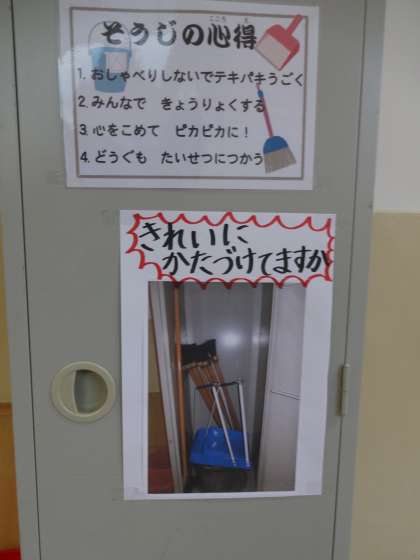 そうじの心得
こころ え
1. おしゃべりしないでテキパキうごく
2. みんなで きょうりょくする
3. 心をこめて ピカピカに！
4. どうぐも たいせつにつかう
きれいに
かたづけてますか